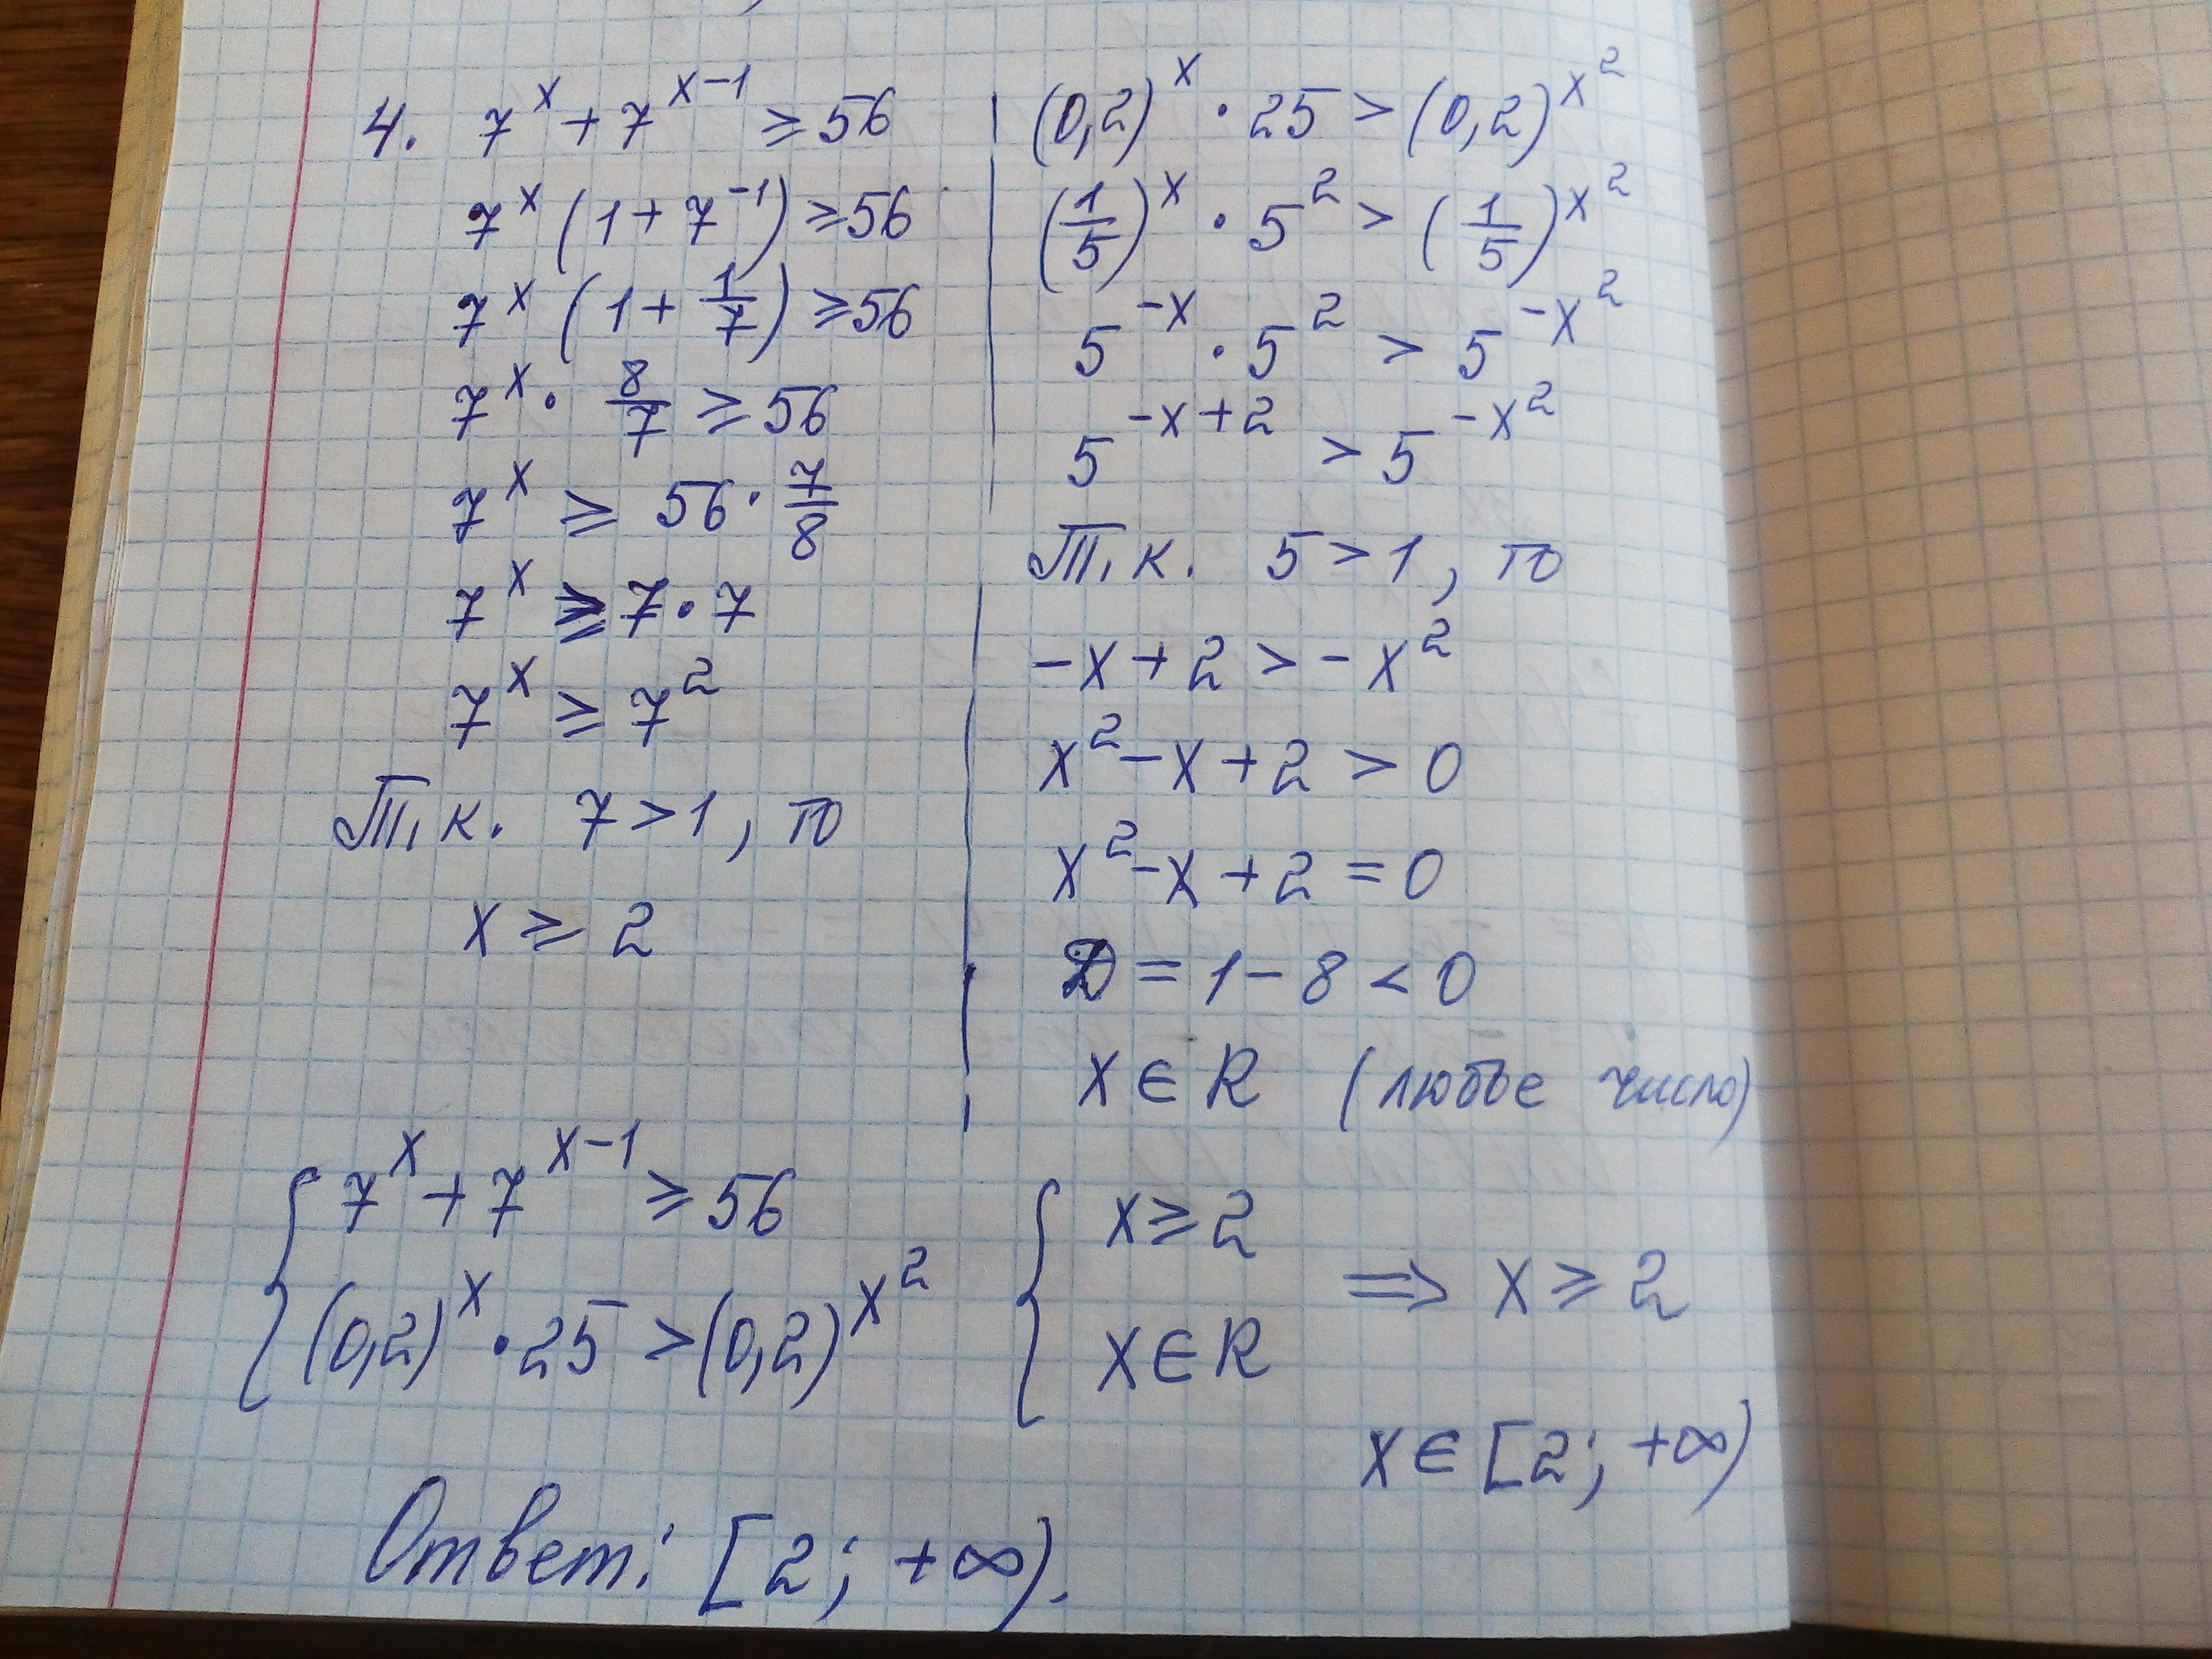 4. 7^x + 7^(x-1) ≥ 56
7^x (1 + 7^(-1)) ≥ 56
7^x (1 + 1/7) ≥ 56
7^x · 8/7 ≥ 56
7^x ≥ 56 · 7/8
7^x ≥ 7 · 7
7^x ≥ 7^2
Т.к. 7 > 1, то
x ≥ 2
(0,2)^x · 25 > (0,2)^(x^2)
(1/5)^x · 5^2 > (1/5)^(x^2)
5^(-x) · 5^2 > 5^(-x^2)
5^(-x+2) > 5^(-x^2)
Т.к. 5 > 1, то
-x + 2 > -x^2
x^2 - x + 2 > 0
x^2 - x + 2 = 0
D = 1 - 8 < 0
x ∈ R (любое число)
{ 7^x + 7^(x-1) ≥ 56
(0,2)^x · 25 > (0,2)^(x^2)
{ x ≥ 2
x ∈ R
⇒ x ≥ 2
x ∈ [2; +∞)
Ответ: [2; +∞).